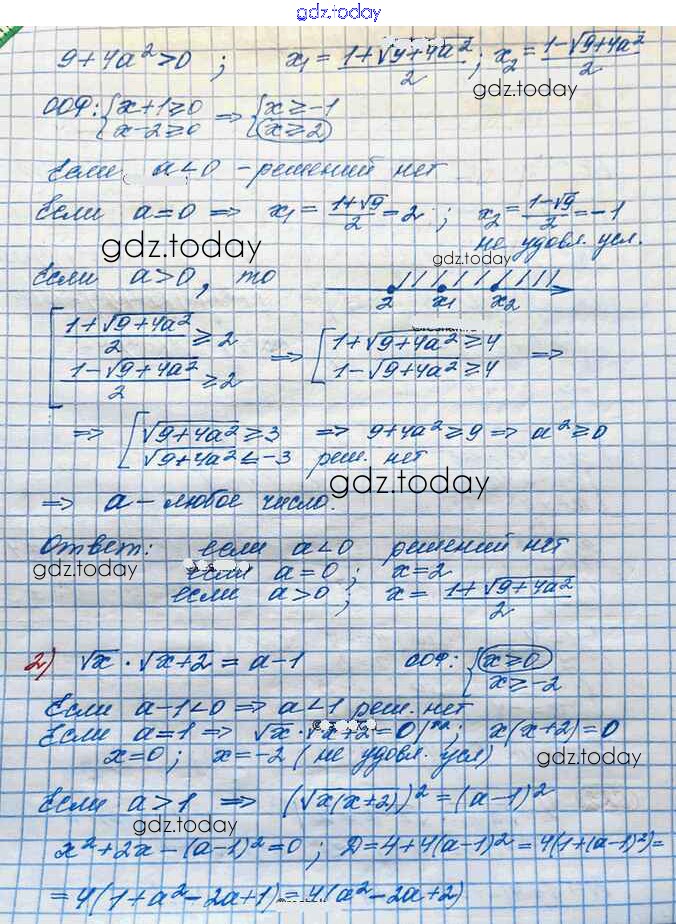 gdz.today
9+4a²>0 ; x₁ = (1+√(9+4a²))/2 ; x₂ = (1-√(9+4a²))/2
gdz.today
ООФ: {x+1≥0 x-2≥0 => {x≥-1 x≥2
Если a<0 - решений нет
Если a=0 => x₁ = (1+√9)/2 = 2 ; x₂ = (1-√9)/2 = -1
не удовл. усл.
gdz.today
gdz.today
Если a>0, то
2 x₁ x₂
[(1+√(9+4a²))/2 ≥ 2 (1-√(9+4a²))/2 ≥ 2 => [1+√(9+4a²) ≥ 4 1-√(9+4a²) ≥ 4 =>
=> [√(9+4a²) ≥ 3 => 9+4a² ≥ 9 => a² ≥ 0
√(9+4a²) ≤ -3 реш. нет
gdz.today
=> a - любое число.
Ответ: если a<0 решений нет
gdz.today
если a=0 ; x=2
если a>0 ; x = (1+√(9+4a²))/2
2) √x · √(x+2) = a-1 ООФ: {x≥0 x≥-2
Если a-1<0 => a<1 реш. нет
Если a=1 => √x · √(x+2) = 0 ; x(x+2)=0
x=0 ; x=-2 (не удовл. усл)
gdz.today
Если a>1 => (√x(x+2))² = (a-1)²
gdz.today
x²+2x-(a-1)²=0 ; D=4+4(a-1)² = 4(1+(a-1)²)=
=4(1+a²-2a+1)=4(a²-2a+2)